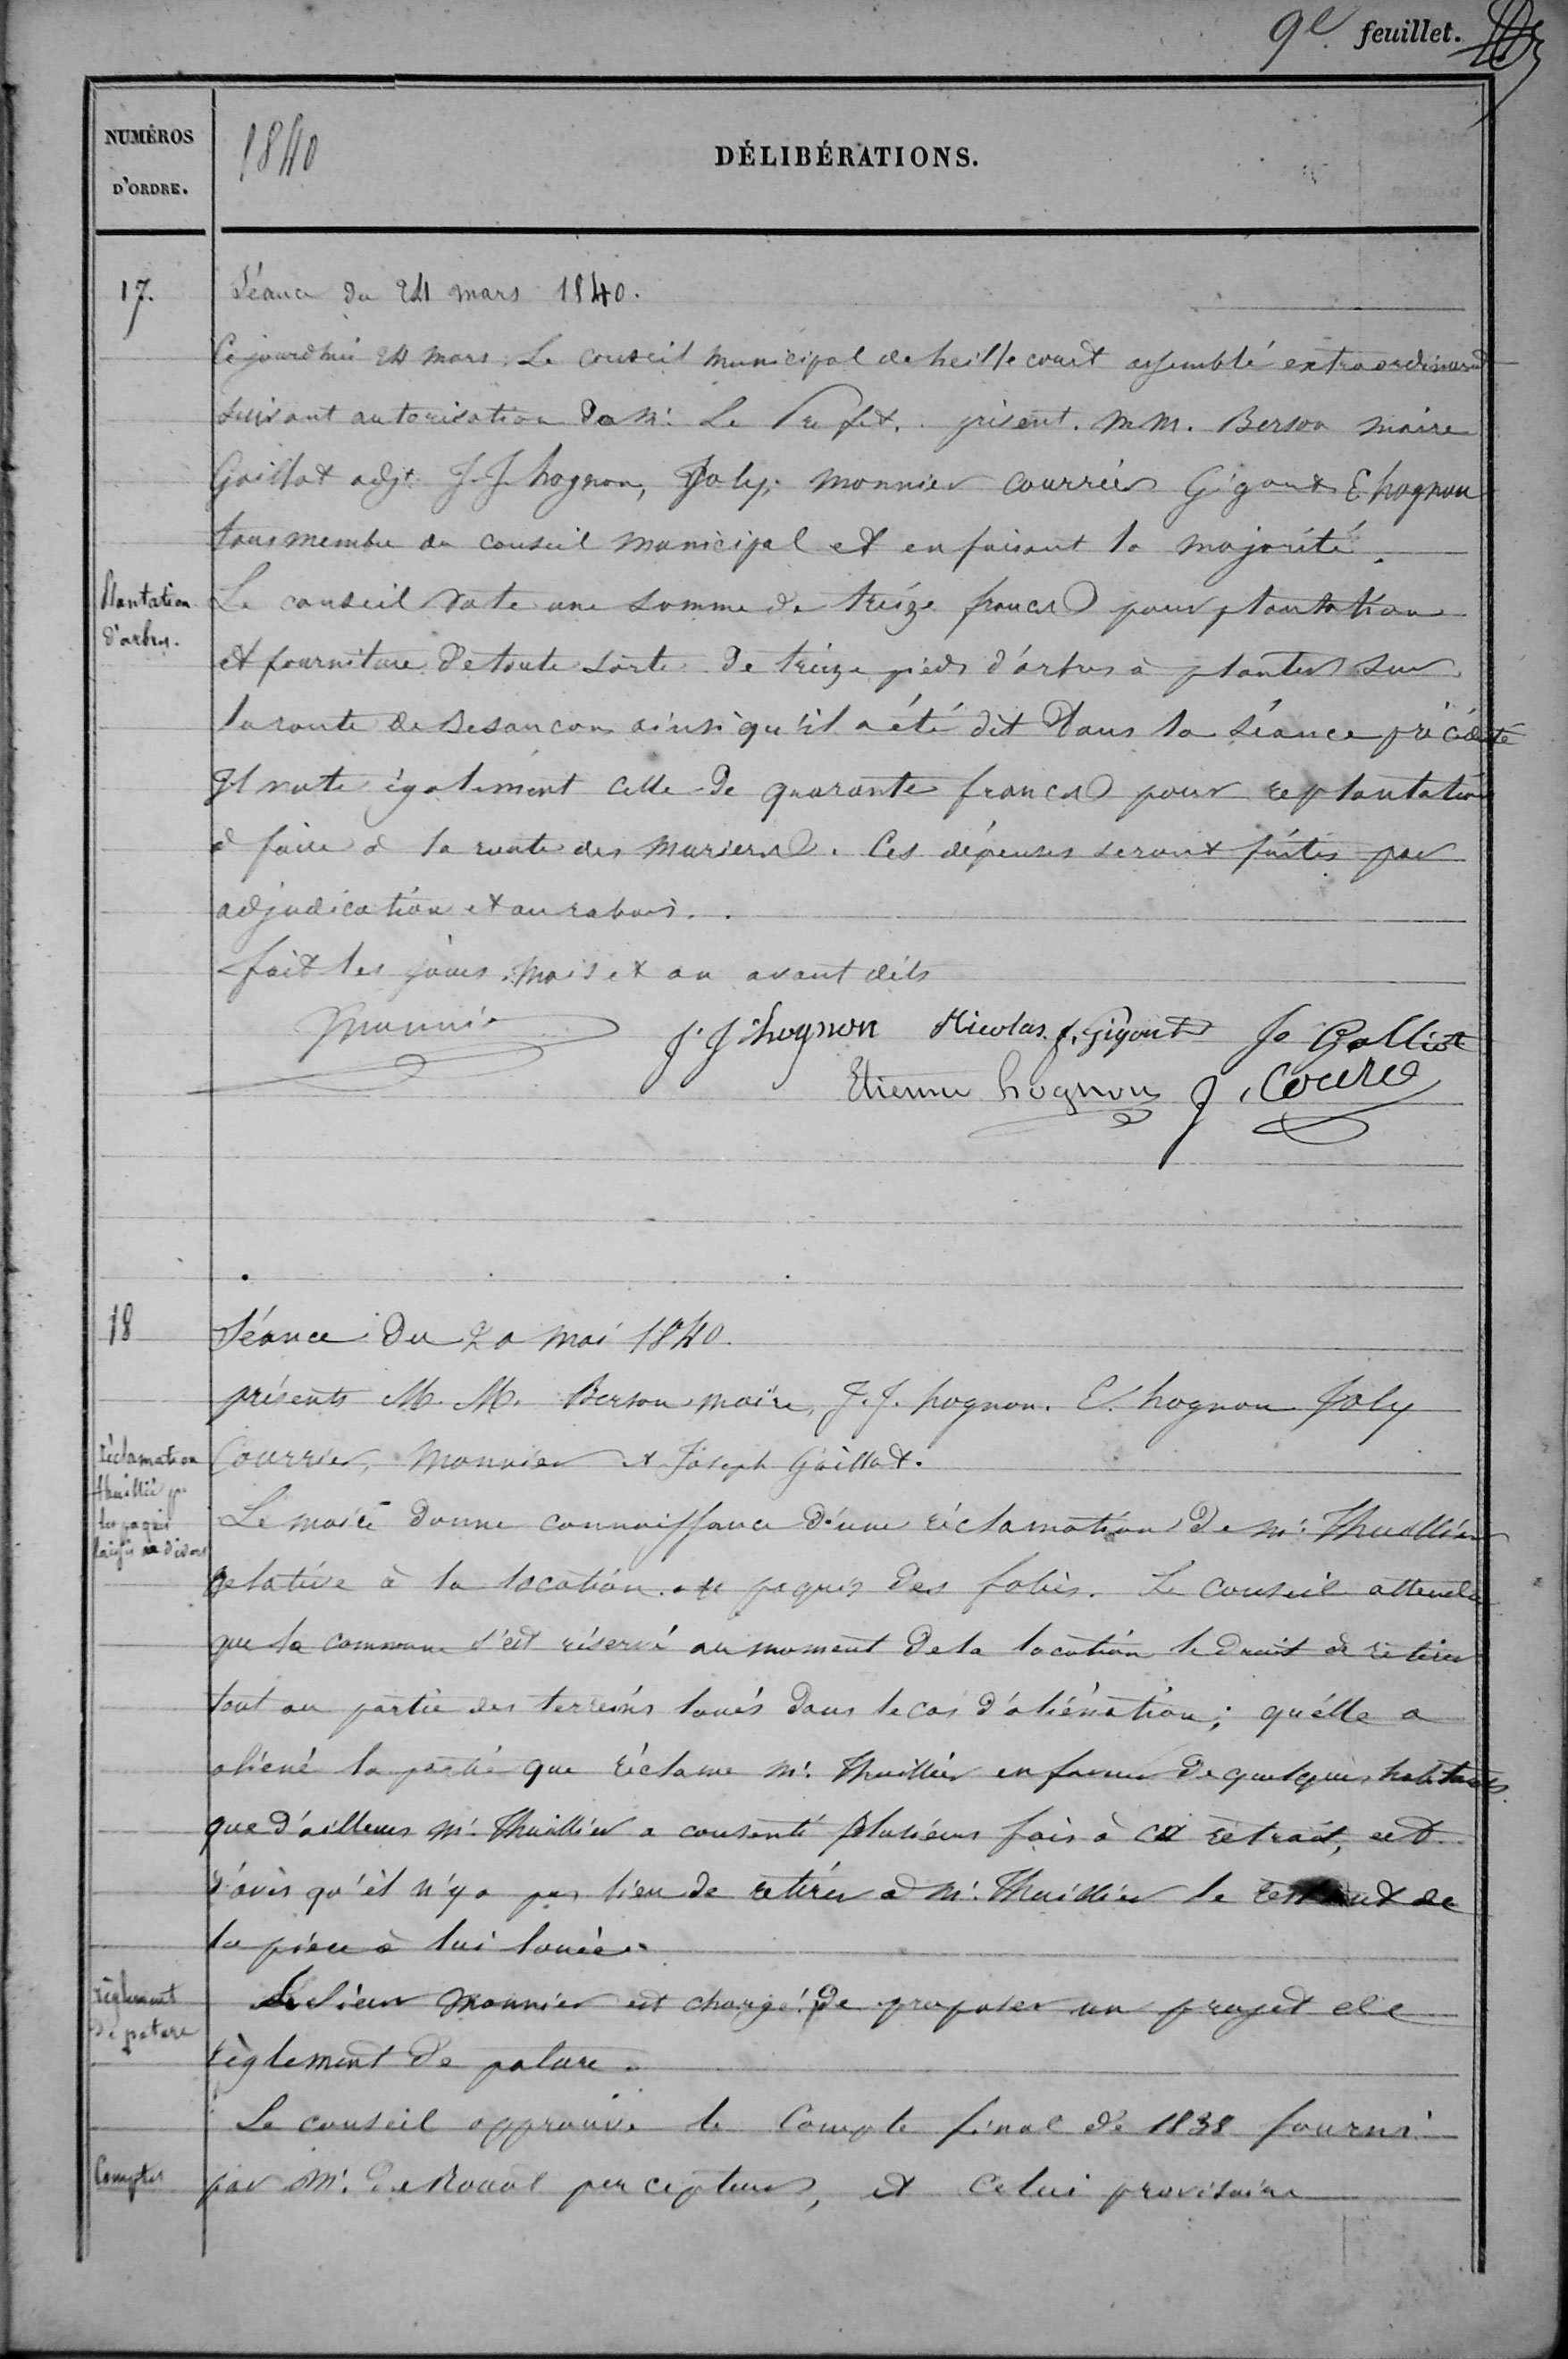 9e feuillet.
NUMÉROS
D'ORDRE.
1840
DÉLIBÉRATIONS.
17.
Séance du 24 mars 1840.
Cejourdhui 24 mars. Le conseil municipal de heillecourt assemblé extraordinairt
suivant autorisation de Mr. Le Prefet. présent. M.M. Berson maire
Gaillot adjt. J. J. hognon, Joly, Monnier Courrier Gigout E. hognon
tous membre du conseil municipal et en faisant la majorité.
Plantation
d'arbres.
Le conseil vote une somme de treize francs pour plantation
et fourniture de toute sorte de treize pieds d'arbres à planter sur
la route de Besançon ainsi qu'il a été dit dans la séance précédte
Il vote également celle de quarante francs pour replantation
à faire à la route des muriers. Ces dépenses seront faites par
adjudication et au rabais.
fait les jours, mois et an avant dits
Monnier
J. J. hognon Nicolas f. Gigout Jo Galliot
Etienne hognon J. Courie
18
Séance du 20 mai 1840.
présents M. M. Berson maire, J. J. hognon. E. hognon Joly
Courrier, Monnier et Joseph Gaillot.
réclamation
thuillié pr
les paquis
laissés à divers
Le maire donne connaissance d'une réclamation de Mr. Thuillier
relative à la location des paquis des folies. Le conseil attendu
que la commune s'est réservé au moment de la location le droit de retirer
tout ou partie des terreins loués dans le cas d'aliénation; qu'elle a
aliené la partie que réclame Mr. Thuillier en faveur de quelques habitants
que d'ailleurs Mr. Thuillier a consenti plusieurs fois à ce retrait, est
d'avis qu'il n'y a pas lieu de retirer à Mr. Thuillier le restant de
la pièce à lui louée.
règlement
de pature
Le sieur Monnier est chargé de proposer un projet de
règlement de pature.
Le conseil approuve le Compte final de 1838 fourni
Comptes
par Mr. percepteur, et celui provisoire